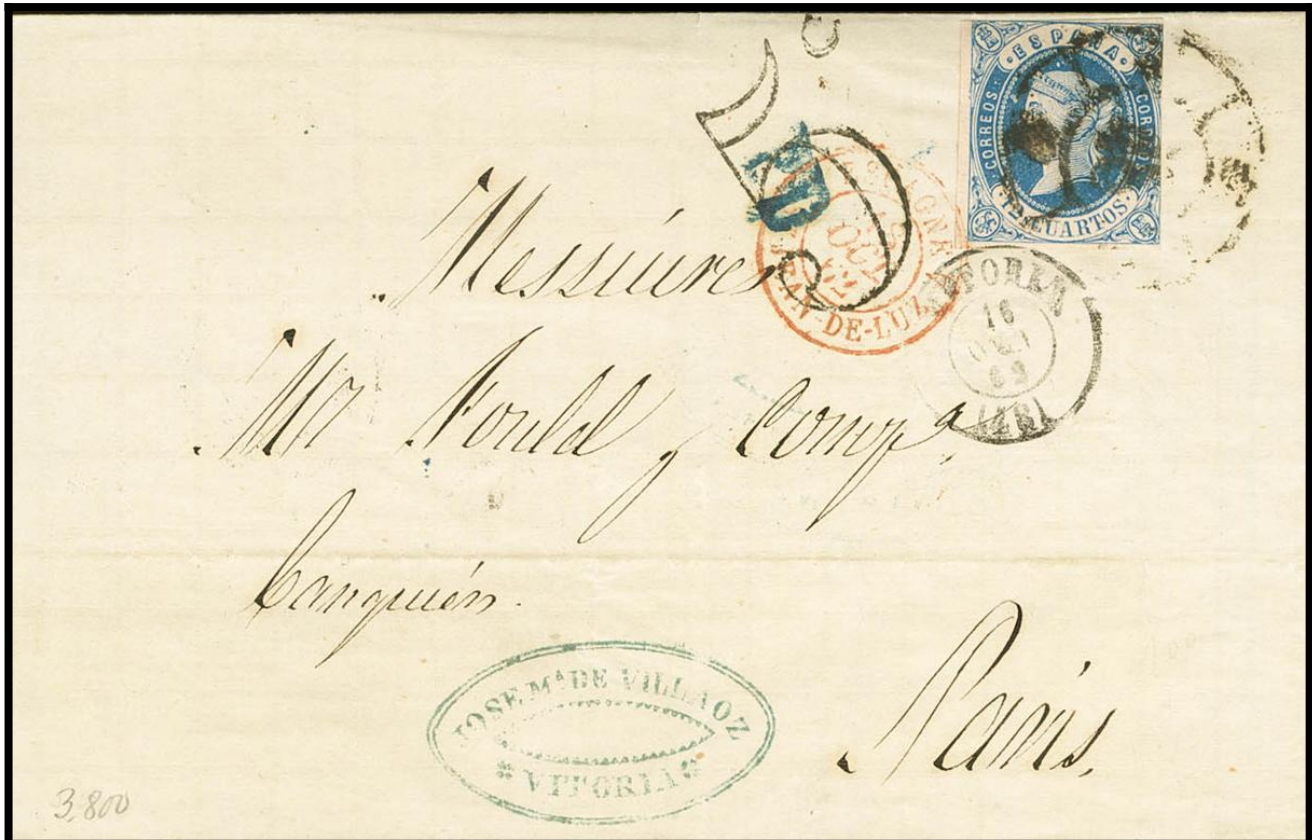 ESPAÑA
CORREOS CORREOS
12 CUARTOS
5
ST JEAN-DE-LUZ
VITORIA
16
OCT
62
Messieures
Mr Fould y Compª.
banquiers.
Paris.
JOSE Mª DE VILLAOZ
VITORIA
3,800